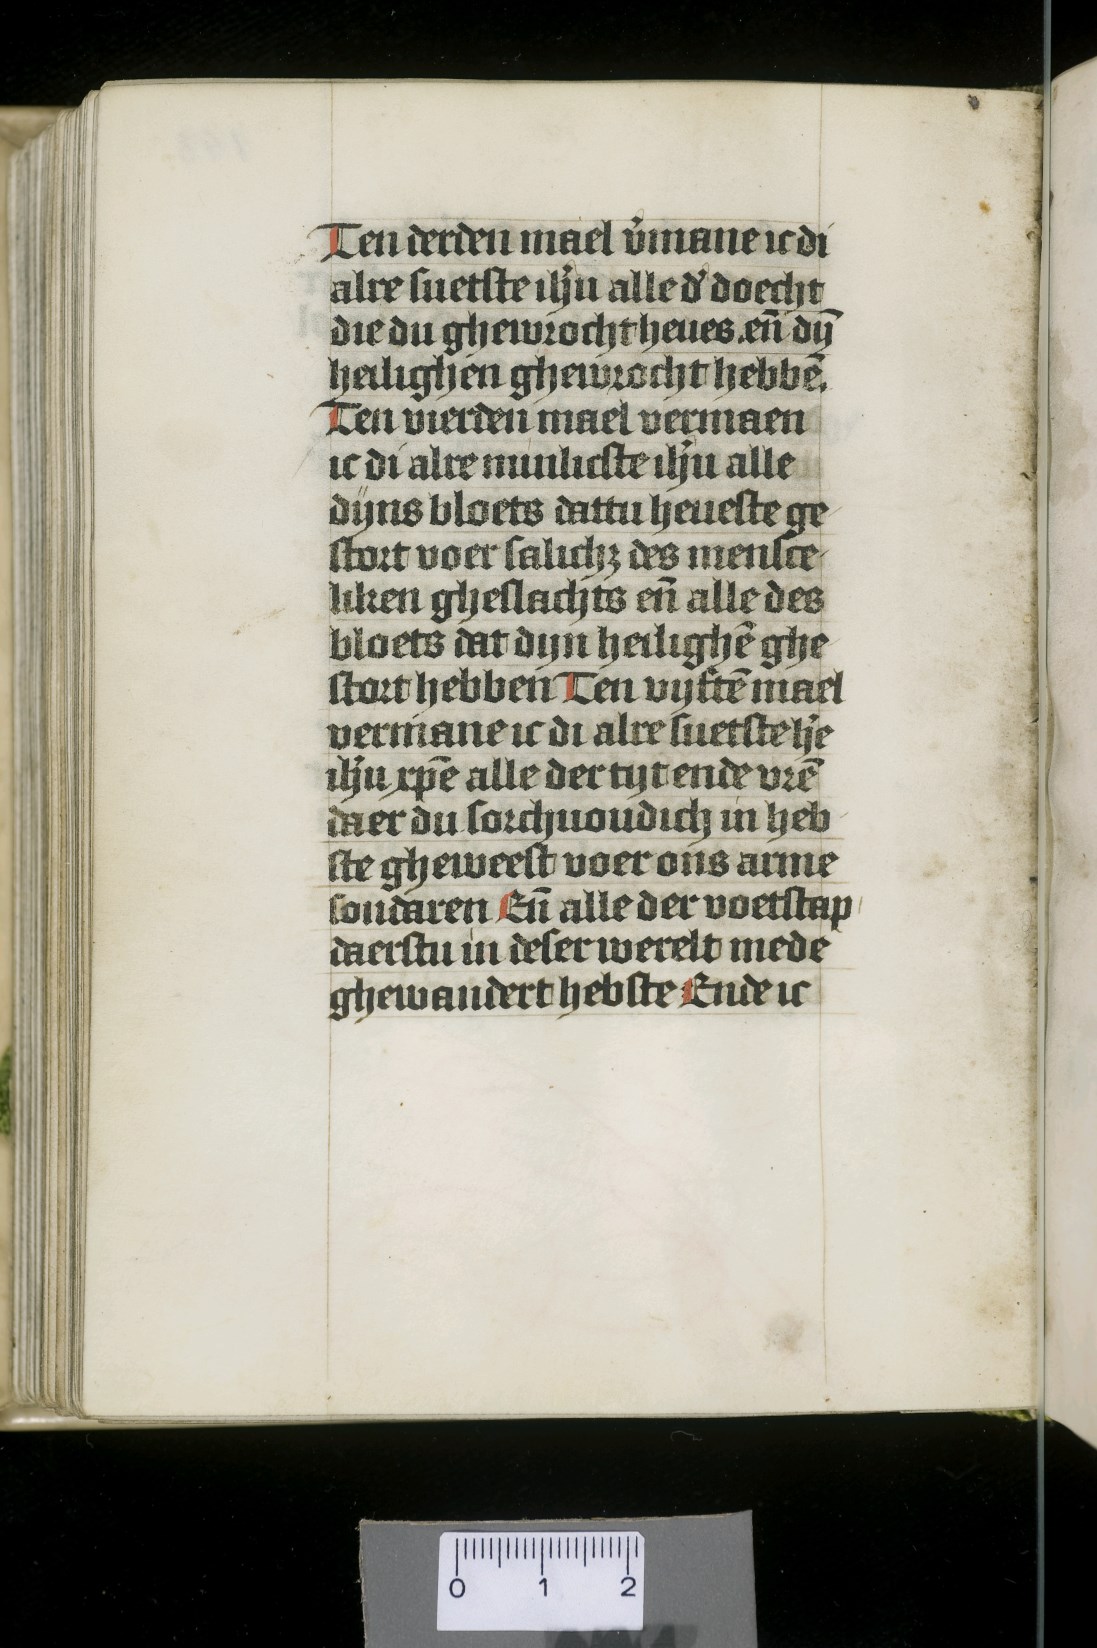 Ten derden mael v̄mane ic di
alre suetste ih̄u alle d' doecht
die du ghewrocht heues. en̄ dÿ
heilighen ghewrocht hebbē.
Ten vierden mael vermaen
ic di alre minlicste ih̄u alle
dijns bloets dattu heueste ge
stort voer salichꝫ des mensce
liken gheslachts en̄ alle des
bloets dat dijn heilighē ghe
stort hebben Ten vijftē mael
vermane ic di alre suetste h̄e
ih̄u xp̄e alle der tijt ende vrē
daer du sorchuoudich in heb
ste gheweest voer ons arme
sondaren En̄ alle der voetstap
daerstu in deser werelt mede
ghewandert hebste Ende ic
0 1 2